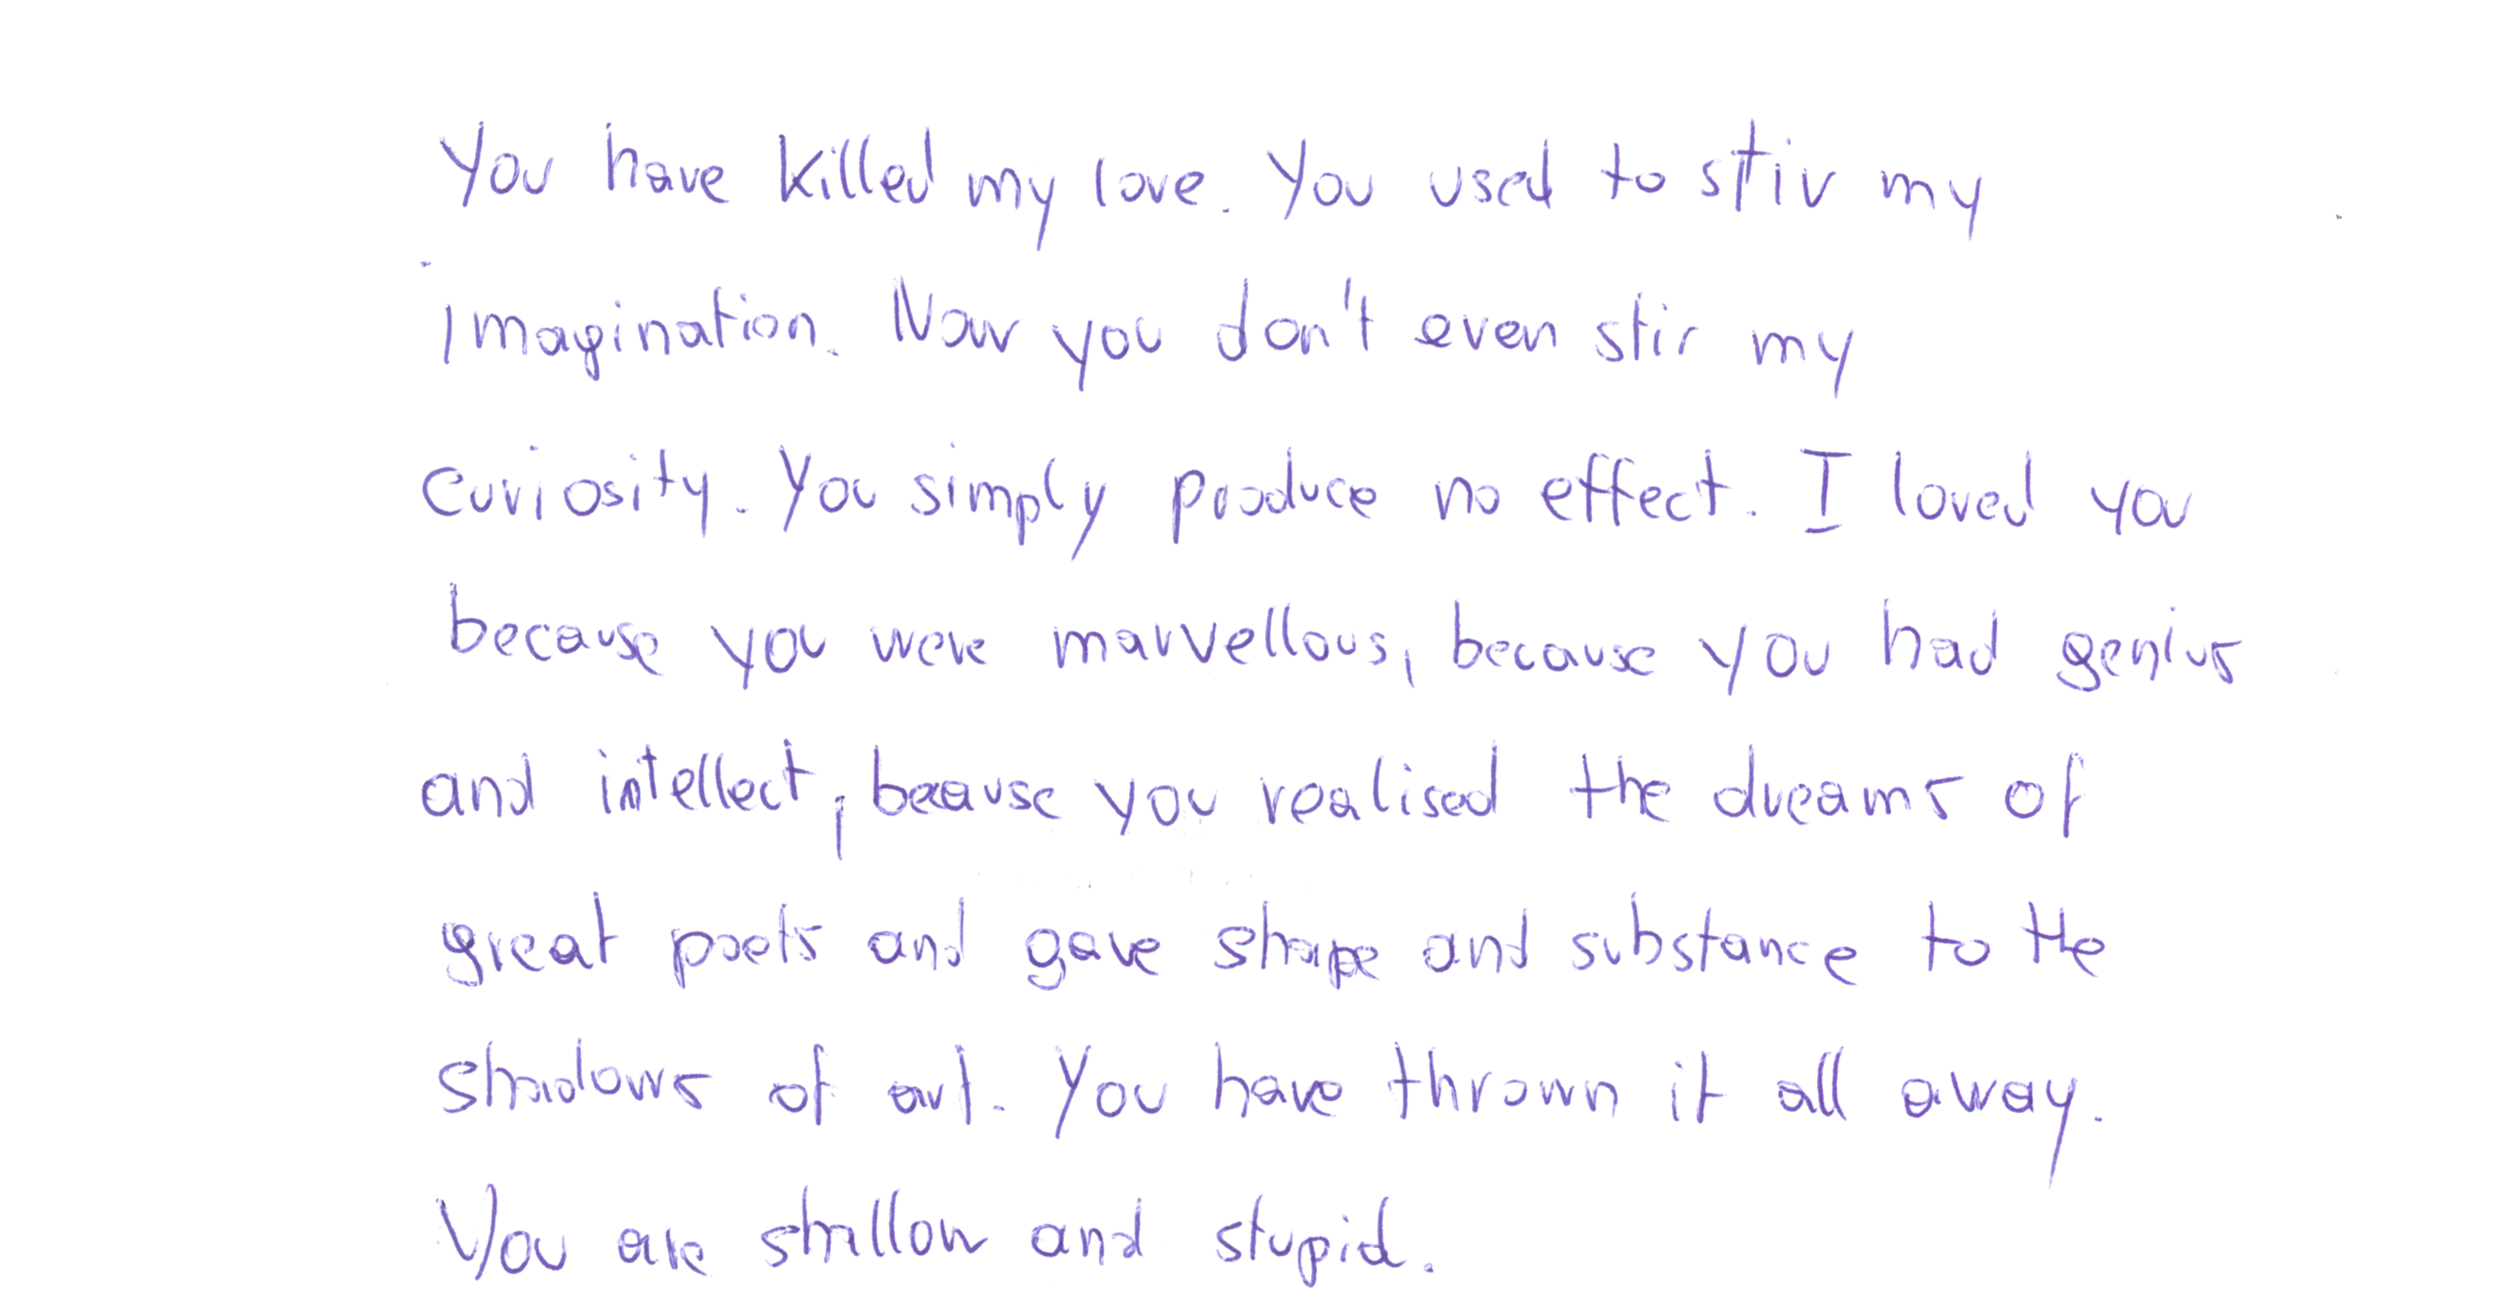 You have killed my love. You used to stir my
imagination. Now you don't even stir my
curiosity. You simply produce no effect. I loved you
because you were marvellous, because you had genius
and intellect, because you realised the dreams of
great poets and gave shape and substance to the
shadows of art. You have thrown it all away.
You are shallow and stupid.